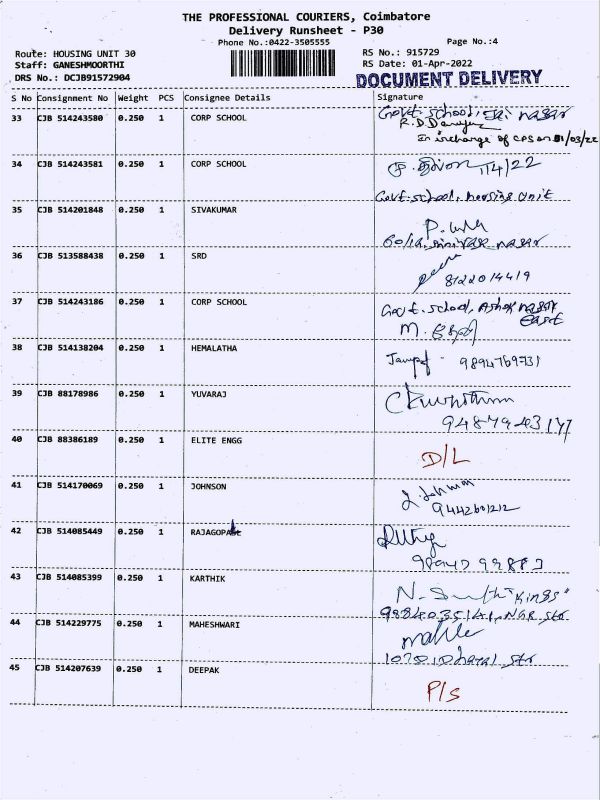 THE PROFESSIONAL COURIERS, Coimbatore
Delivery Runsheet - P30
Phone No.:0422-3505555
Page No.:4
Route: HOUSING UNIT 30
RS No.: 915729
Staff: GANESHMOORTHI
RS Date: 01-Apr-2022
DRS No.: DCJB91572904
DOCUMENT DELIVERY
S No Consignment No Weight PCS Consignee Details Signature
33 CJB 514243580 0.250 1 CORP SCHOOL Govt. school, Jai nagar
In incharge of CPS on 01/03/22
34 CJB 514243581 0.250 1 CORP SCHOOL 1/4/22
Govt. school, housing unit
35 CJB 514201848 0.250 1 SIVAKUMAR
nagar
36 CJB 513588438 0.250 1 SRD
8122014419
37 CJB 514243186 0.250 1 CORP SCHOOL Govt. school, Ashok nagar
East
M.
38 CJB 514138204 0.250 1 HEMALATHA 9894769731
39 CJB 88178986 0.250 1 YUVARAJ
40 CJB 88386189 0.250 1 ELITE ENGG D/L
41 CJB 514170069 0.250 1 JOHNSON
9442601212
42 CJB 514085449 0.250 1 RAJAGOPAL
43 CJB 514085399 0.250 1 KARTHIK N. "Kings"
44 CJB 514229775 0.250 1 MAHESHWARI
45 CJB 514207639 0.250 1 DEEPAK P/S